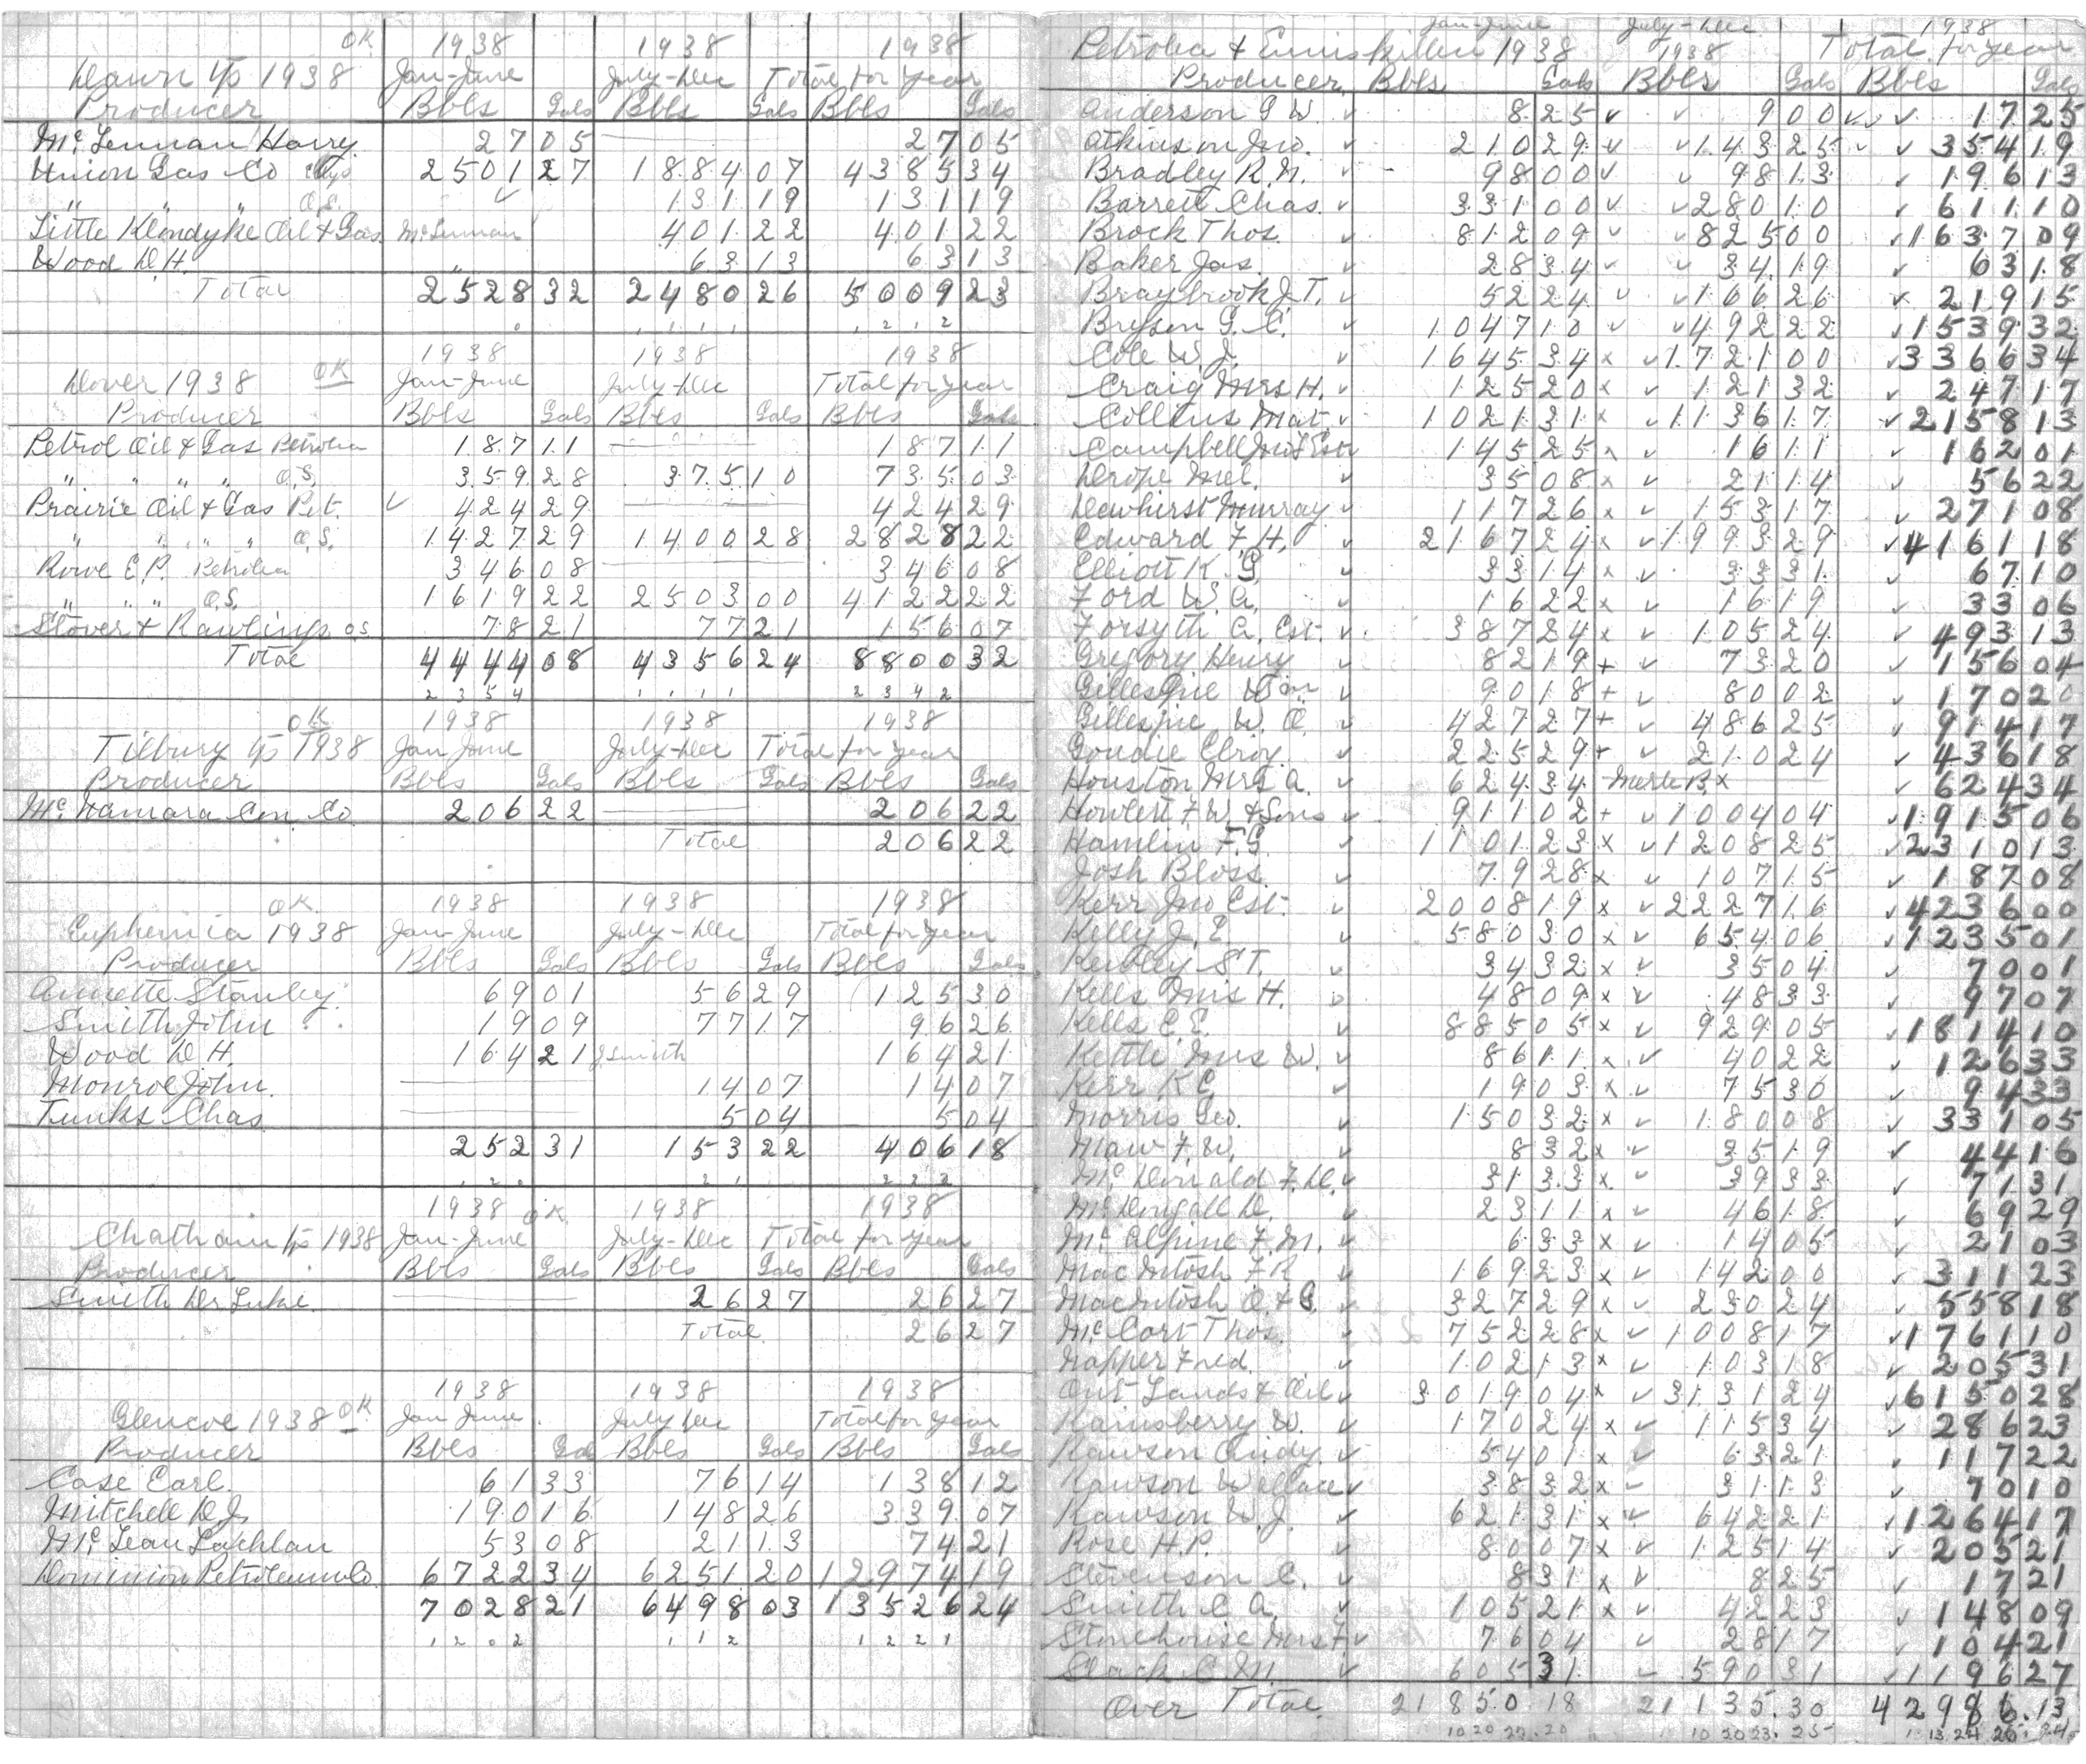 OK 1938 1938 1938
Dawn T/p 1938 Jan-June July-Dec Total for year
Producer Bbls Gals Bbls Gals Bbls Gals
McLennan Harry 27 05 27 05
Union Gas Co 2501 27 1884 07 4385 34
" " " O.S. ✓ 131 19 131 19
Little Klondyke Oil & Gas McLennan 401 22 401 22
Wood D.H. " 63 13 63 13
Total 2528 32 2480 26 5009 23
1938 1938 1938
Dover 1938 OK Jan-June July-Dec Total for year
Producer Bbls Gals Bbls Gals Bbls Gals
Petrol Oil & Gas Petrolia 187 11 187 11
" " " " O.S. 359 28 375 10 735 03
Prairie Oil & Gas Pet. ✓ 424 29 424 29
" " " " O.S. 1427 29 1400 28 2828 22
Rowe E.P. Petrolia 346 08 346 08
" " " O.S. 1619 22 2503 00 4122 22
Stover & Rawlings O.S. 78 21 77 21 156 07
Total 4444 08 4356 24 8800 32
2 3 5 4 1 1 1 1 2 3 4 2
OK 1938 1938 1938
Tilbury T/p 1938 Jan June July-Dec Total for year
Producer Bbls Gals Bbls Gals Bbls Gals
McNamara Con. Co 206 22 206 22
Total 206 22
OK 1938 1938 1938
Euphemia 1938 Jan-June July-Dec Total for year
Producer Bbls Gals Bbls Gals Bbls Gals
Annette Stanley 69 01 56 29 125 30
Smith John 19 09 77 17 96 26
Wood D H. 164 21 J Smith 164 21
Monroe John 14 07 14 07
Tunks Chas 5 04 5 04
252 31 153 22 406 18
1938 OK 1938 1938
Chatham T/p 1938 Jan-June July-Dec Total for year
Producer Bbls Gals Bbls Gals Bbls Gals
Smith Dr Luke 26 27 26 27
Total 26 27
1938 1938 1938
Glencoe 1938 OK Jan June July Dec Total for year
Producer Bbls Gal Bbls Gals Bbls Gals
Case Earl 61 33 76 14 138 12
Mitchell D J. 190 16 148 26 339 07
McLean Lachlan 53 08 21 13 74 21
Dominion Petroleum Co 6722 34 6251 20 12974 19
7028 21 6498 03 13526 24
1 2 0 2 1 1 2 1 2 2 1
Jan-June July-Dec 1938
Petrolia & Enniskillen 1938 1938 Total for year
Producer Bbls Gals Bbls Gals Bbls Gals
Anderson G W. ✓ 8 25 ✓ ✓ 9 00 ✓ ✓ ✓ 17 25
Atkinson Jno. ✓ 210 29 ✓ ✓ 143 25 ✓ ✓ 354 19
Bradley R.N. ✓ 98 00 ✓ ✓ 98 13 ✓ 196 13
Barrett Chas. ✓ 331 00 ✓ ✓ 280 10 ✓ 611 10
Brock Thos. ✓ 812 09 ✓ ✓ 825 00 ✓ 1637 09
Baker Jas. ✓ 28 34 ✓ ✓ 34 19 ✓ 63 18
Braybrook J.T. ✓ 52 24 ✓ ✓ 166 26 ✓ 219 15
Bryson G. C. ✓ 1047 10 ✓ ✓ 492 22 ✓ 1539 32
Cole W. J. ✓ 1645 34 x ✓ 1721 00 ✓ 3366 34
Craig Mrs H. ✓ 125 20 x ✓ 121 32 ✓ 247 17
Collins Mat. ✓ 1021 31 x ✓ 1136 17 ✓ 2158 13
Campbell Jno Estr 145 25 x ✓ 16 11 ✓ 162 01
Drope Mel. ✓ 35 08 x ✓ 21 14 ✓ 56 22
Dewhirst Murray ✓ 117 26 x ✓ 153 17 ✓ 271 08
Edward F. H. ✓ 2167 24 x ✓ 1993 29 ✓ 4161 18
Elliott K. G. ✓ 33 14 x ✓ 33 31 ✓ 67 10
Ford W. A. ✓ 16 22 x ✓ 16 19 ✓ 33 06
Forsyth A. Est. ✓ 387 24 x ✓ 105 24 ✓ 493 13
Gregory Henry ✓ 82 19 + ✓ 73 20 ✓ 156 04
Gillespie Wm ✓ 90 18 + ✓ 80 02 ✓ 170 20
Gillespie W. O. ✓ 427 27 + ✓ 486 25 ✓ 914 17
Goudie Elroy ✓ 225 29 + ✓ 210 24 ✓ 436 18
Houston Mrs A. ✓ 624 34 Merle B x ✓ 624 34
Howlett F. W. & Sons ✓ 911 02 + ✓ 1004 04 ✓ 1915 06
Hamlin F.G. ✓ 1101 23 x ✓ 1208 25 ✓ 2310 13
Josh Bloss ✓ 79 28 x ✓ 107 15 ✓ 187 08
Kerr Jno Est. ✓ 2008 19 x ✓ 2227 16 ✓ 4236 00
Kelly J. E. ✓ 580 30 x ✓ 654 06 ✓ 1235 01
Kerbley S T. ✓ 34 32 x ✓ 35 04 ✓ 70 01
Kells Mrs H. ✓ 48 09 x ✓ 48 33 ✓ 97 07
Kells C. E. ✓ 885 05 x ✓ 929 05 ✓ 1814 10
Kettle Mrs W. ✓ 86 11 x ✓ 40 22 ✓ 126 33
Kerr K E ✓ 19 03 x ✓ 75 30 ✓ 94 33
Morris Geo. ✓ 150 32 x ✓ 180 08 ✓ 331 05
Maw F. W. ✓ 8 32 x ✓ 35 19 ✓ 44 16
McDonald F. D. ✓ 31 33 x ✓ 39 33 ✓ 71 31
McDougall D. ✓ 23 11 x ✓ 46 18 ✓ 69 29
McAlpine F. M. ✓ 6 33 x ✓ 14 05 ✓ 21 03
MacIntosh F R ✓ 169 23 x ✓ 142 00 ✓ 311 23
MacIntosh O. & G. ✓ 327 29 x ✓ 230 24 ✓ 558 18
McCort Thos. ✓ 752 28 x ✓ 1008 17 ✓ 1761 10
Napper Fred. ✓ 102 13 x ✓ 103 18 ✓ 205 31
Ont Lands & Oil ✓ 3019 04 x ✓ 3131 24 ✓ 6150 28
Rainsberry W. ✓ 170 24 x ✓ 115 34 ✓ 286 23
Rawson Andy ✓ 54 01 x ✓ 63 21 ✓ 117 22
Rawson Wallace ✓ 38 32 x ✓ 31 13 ✓ 70 10
Rawson W. J. ✓ 621 31 x ✓ 642 21 ✓ 1264 17
Rose H.P. ✓ 80 07 x ✓ 125 14 ✓ 205 21
Stevenson C. ✓ 8 31 x ✓ 8 25 ✓ 17 21
Smith C A. ✓ 105 21 x ✓ 42 23 ✓ 148 09
Stonehouse Mrs F ✓ 76 04 ✓ 28 17 ✓ 104 21
Slack C. M. ✓ 605 31 ✓ 590 31 ✓ 1196 27
Over Total. 21 850 18 21 135.30 42986.13
10 20 22.20 10 20 23.25 1 13 24 26 24